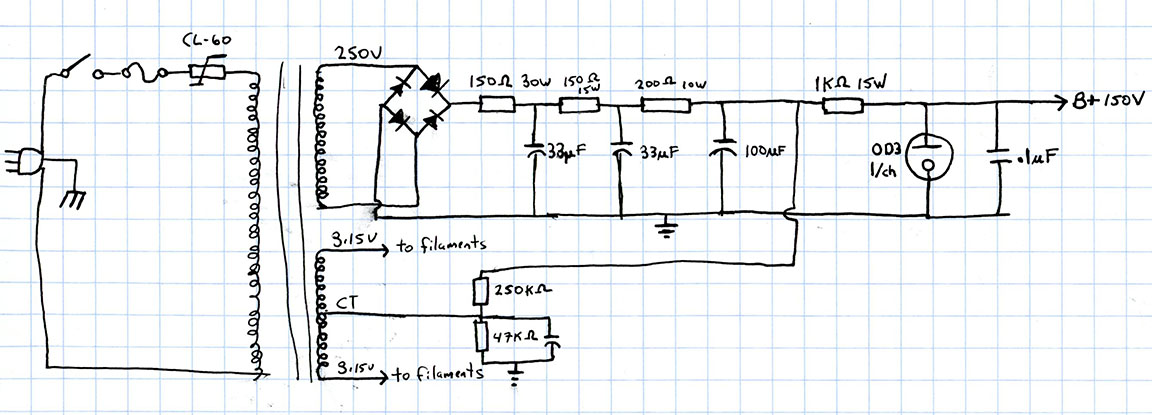 CL-60
250V
150Ω 30W
150Ω 15W
200Ω 10W
1KΩ 15W
B+ 150V
33µF
33µF
100µF
OD3
1/ch
.1µF
3.15V
to filaments
CT
250KΩ
47KΩ
3.15V
to filaments